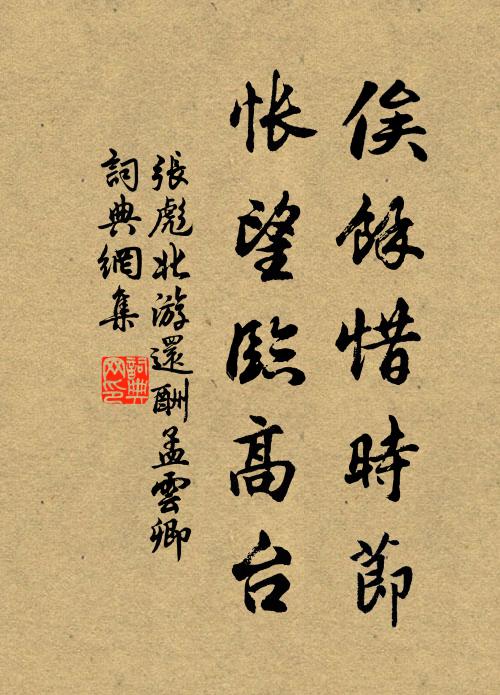 俟餘惜時節
悵望臨高台
張彪北游還酬孟雲卿
詞典網集
詞典網印